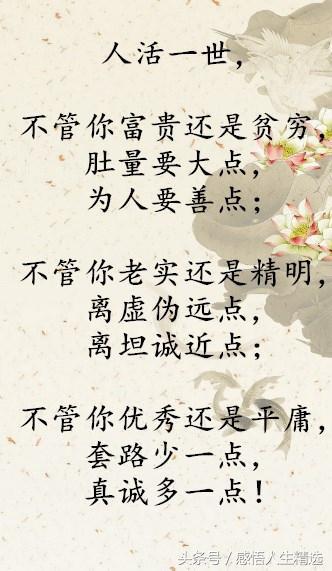 人活一世，
不管你富贵还是贫穷，
肚量要大点，
为人要善点；
不管你老实还是精明，
离虚伪远点，
离坦诚近点；
不管你优秀还是平庸，
套路少一点，
真诚多一点！
头条号 / 感悟人生精选